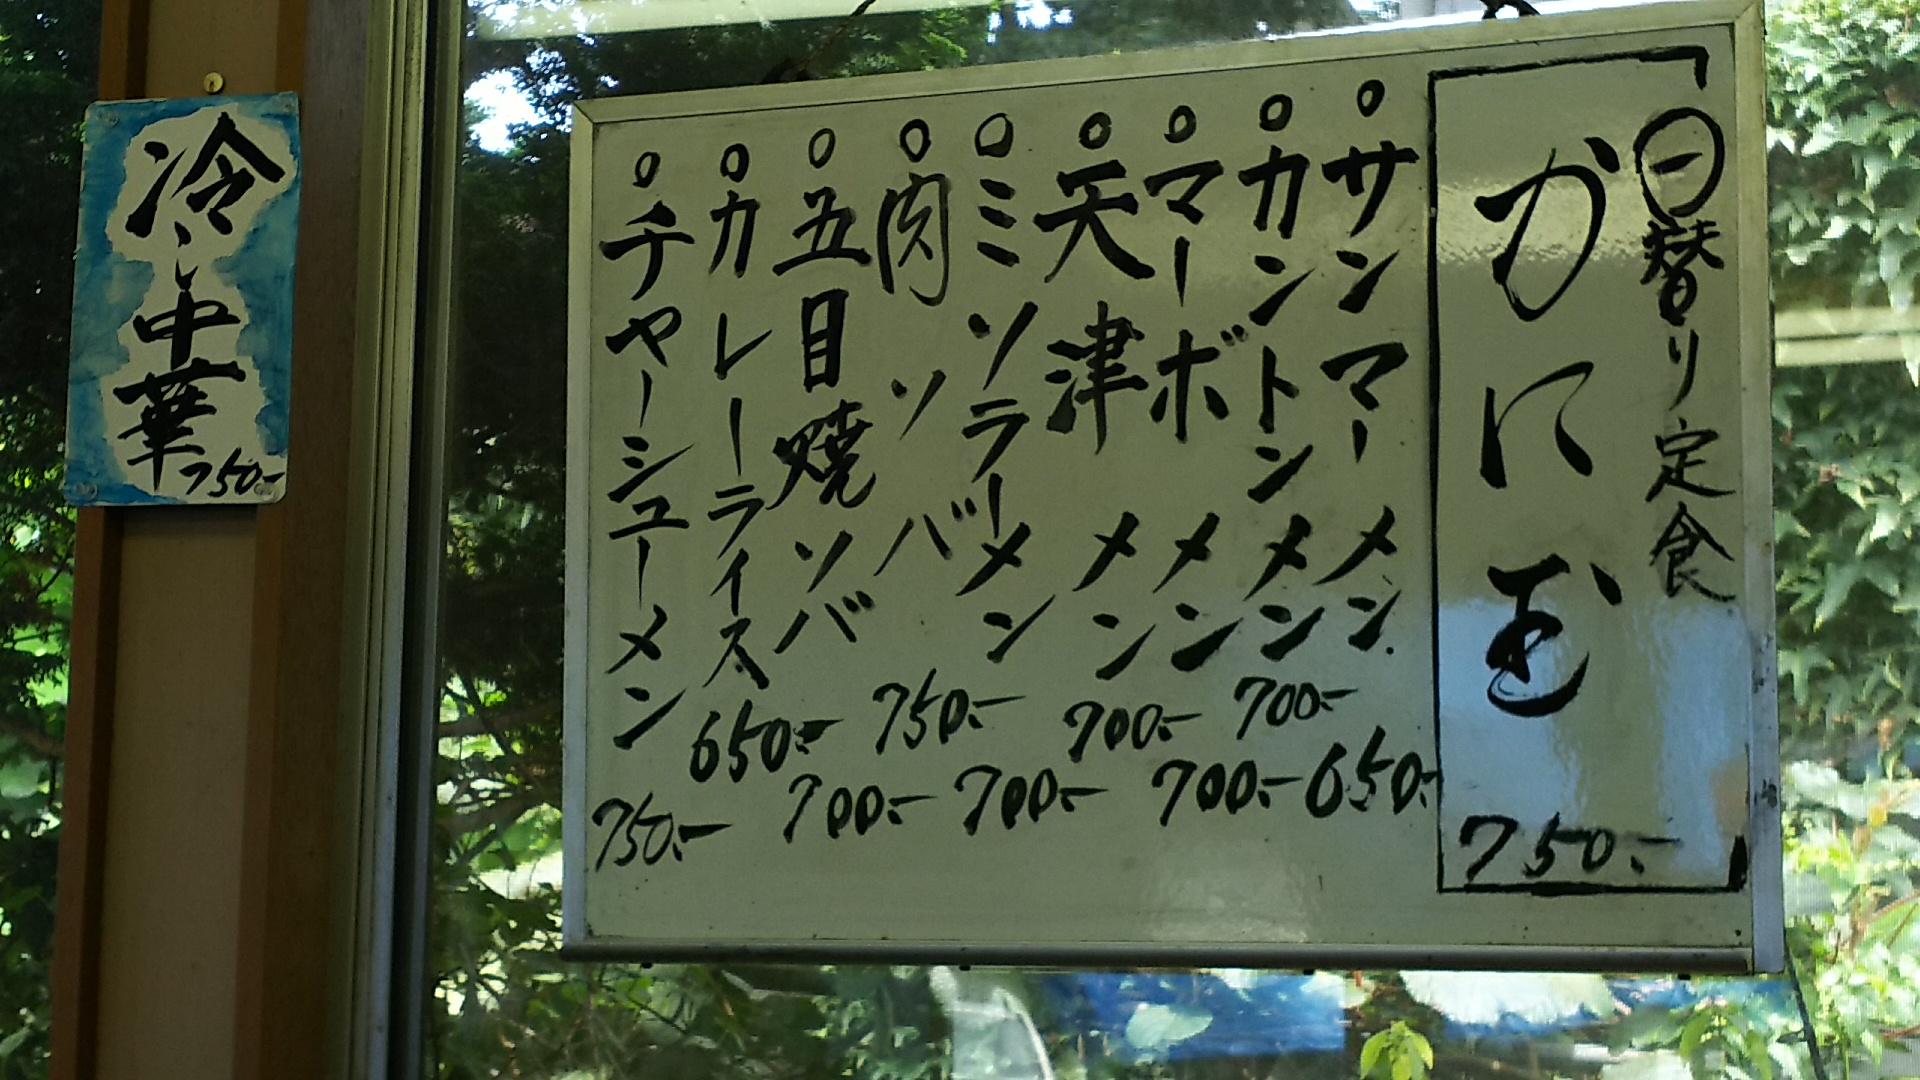 ㊀替り定食
かに玉 750.-
○サンマーメン 650.-
○カントンメン 700.-
○マーボメン 700.-
○天津メン 700.-
○ミソラーメン 700.-
○肉ソバ 750.-
○五目焼ソバ 700.-
○カレーライス 650.-
○チャーシューメン 750.-
冷し中華 750.-